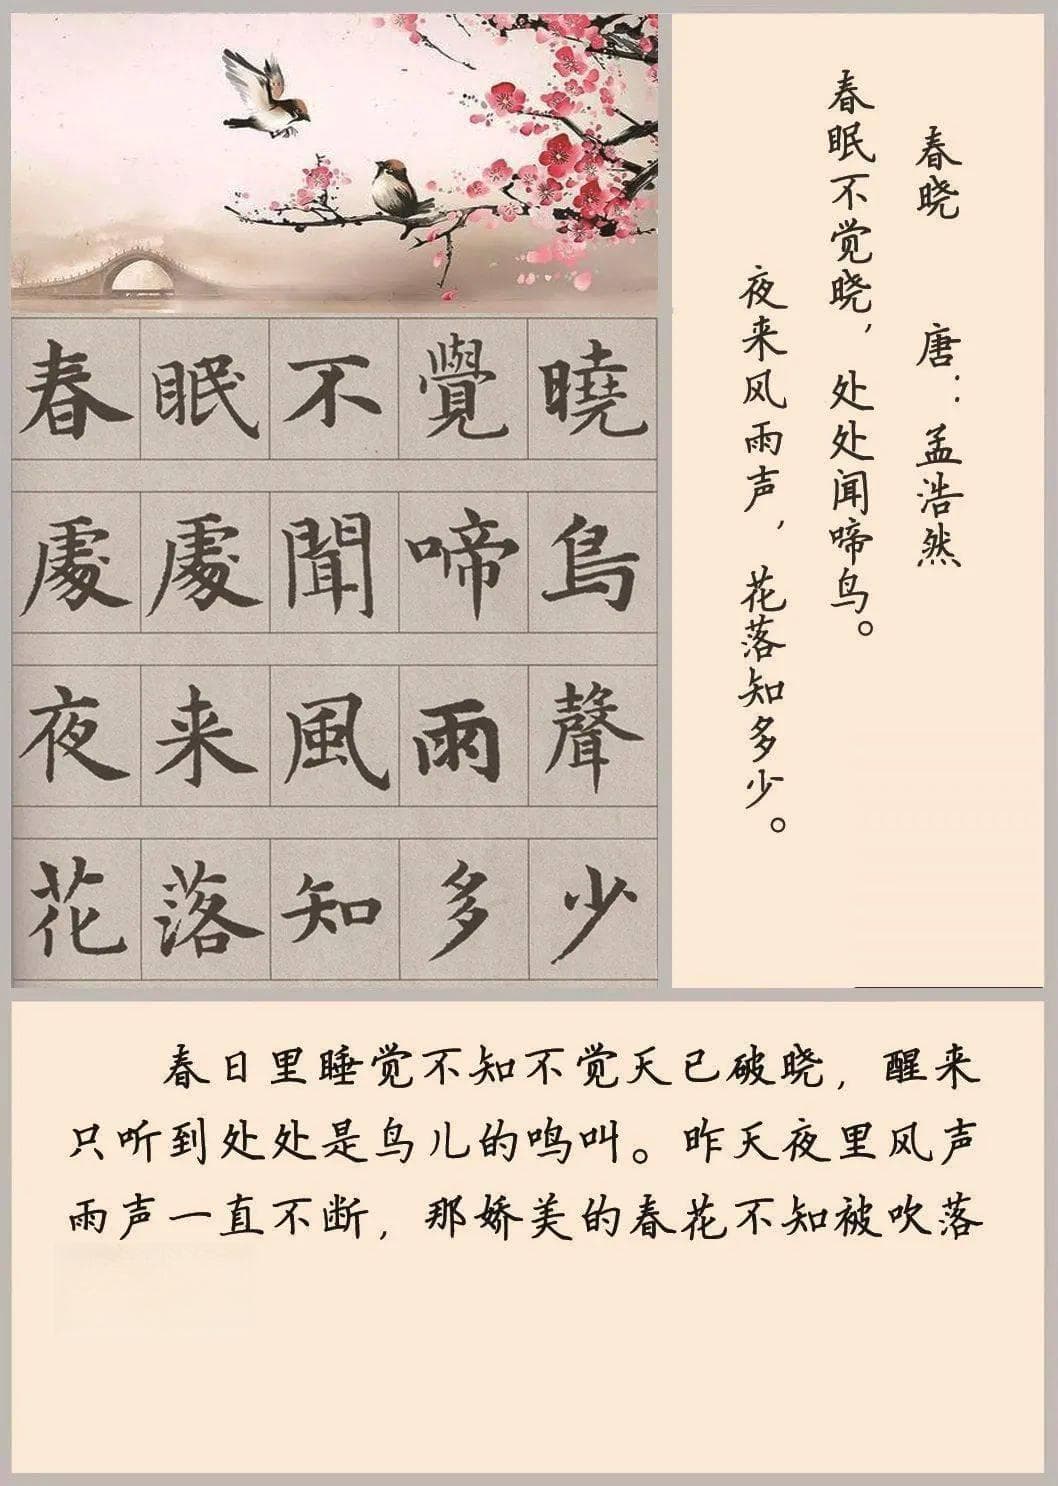 春眠不覺曉
處處聞啼鳥
夜来風雨聲
花落知多少
春晓 唐：孟浩然
春眠不觉晓，处处闻啼鸟。
夜来风雨声，花落知多少。
春日里睡觉不知不觉天已破晓，醒来
只听到处处是鸟儿的鸣叫。昨天夜里风声
雨声一直不断，那娇美的春花不知被吹落